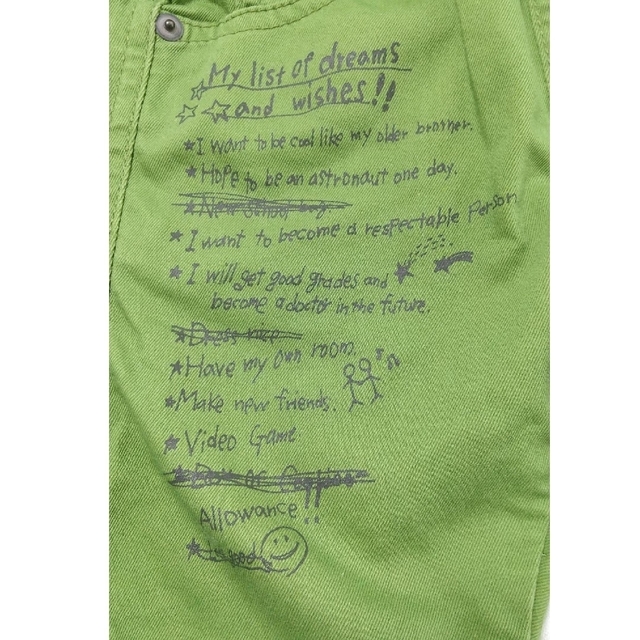 My list of dreams
and wishes!!
★I want to be cool like my older brother.
★Hope to be an astronaut one day.
★New school bag.
★I want to become a respectable person
★I will get good grades and
become a doctor in the future.
★Dress nice
★Have my own room.
★Make new friends.
★Video Game
★Box of
Allowance!!
★